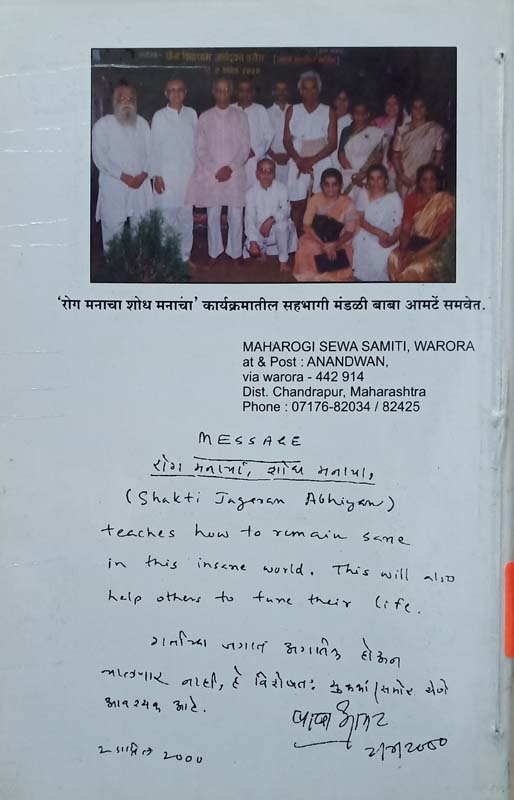 'रोग मनाचा शोध मनाचा' कार्यक्रमातील सहभागी मंडळी बाबा आमटें समवेत.
MAHAROGI SEWA SAMITI, WARORA
at & Post : ANANDWAN,
via warora - 442 914
Dist. Chandrapur, Maharashtra
Phone : 07176-82034 / 82425
MESSAGE
रोग मनाचा, शोध मनाचा,
(Shakti Jagaran Abhiyan)
teaches how to remain sane
in this insane world. This will also
help others to tune their life.
जगात अगतिक होऊन
चालणार नाही, हे विशेषतः समोर येणे
आवश्यक आहे.
बाबा आमटे
2000